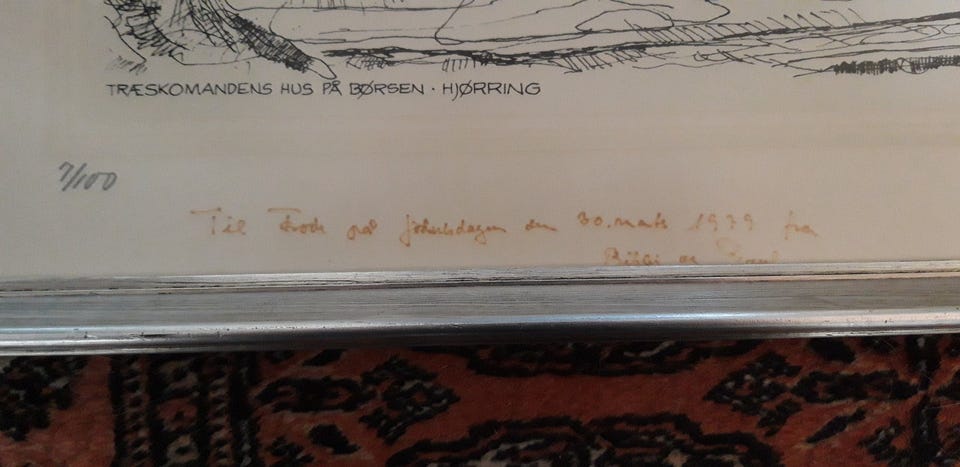 TRÆSKOMANDENS HUS PÅ BØRSEN · HJØRRING
7/100
Til Frode på fødselsdagen den 30. marts 1979 fra